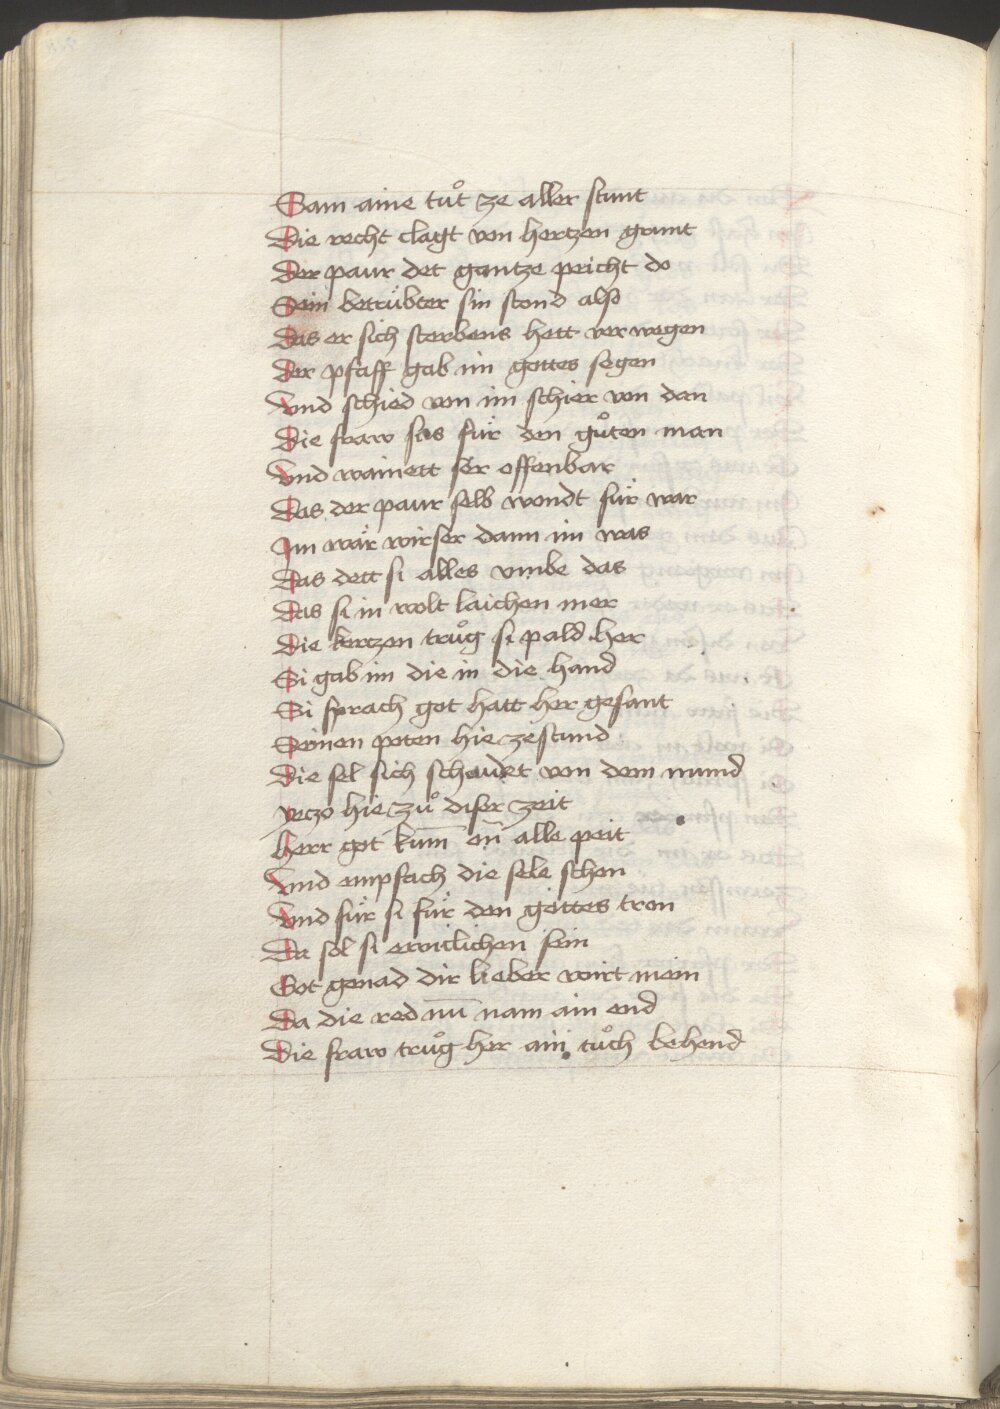 Sam aine tuͦt ze aller stunt
Die recht clagt von hertzen grunt
Der paur det gantze peicht do
Sein betruͤbter sin stond also
Das er sich sterbens hett verwegen
Der pfaff gab im gottes segen
Vnd schied von im schier von dan
Die fraw sas fuͤr den guͦten man
Vnd wainett ser offenbar
Das der paur selb wondt fuͤr war
Im waͤr wirser dann im was
Das dett si alles vmbe das
Das si in wolt laichen mer
Die kertzen truͦg si pald her
Si gab im die in die hand
Si sprach got hatt her gesant
Seinen poten hie zestund
Die sel sich schaidet von dem mund
yetzo hie zuͦ diser zeit
Herr got kum̄ on̄ alle peit
Vnd empfach die sele schon
Vnd fuͤr si fuͤr den gottes tron
Da sol si ewiclichen sein
Got genad dir lieber wirt mein
Da die red nu̅ nam ain end
Die fraw truͦg her ain tuͦch behend